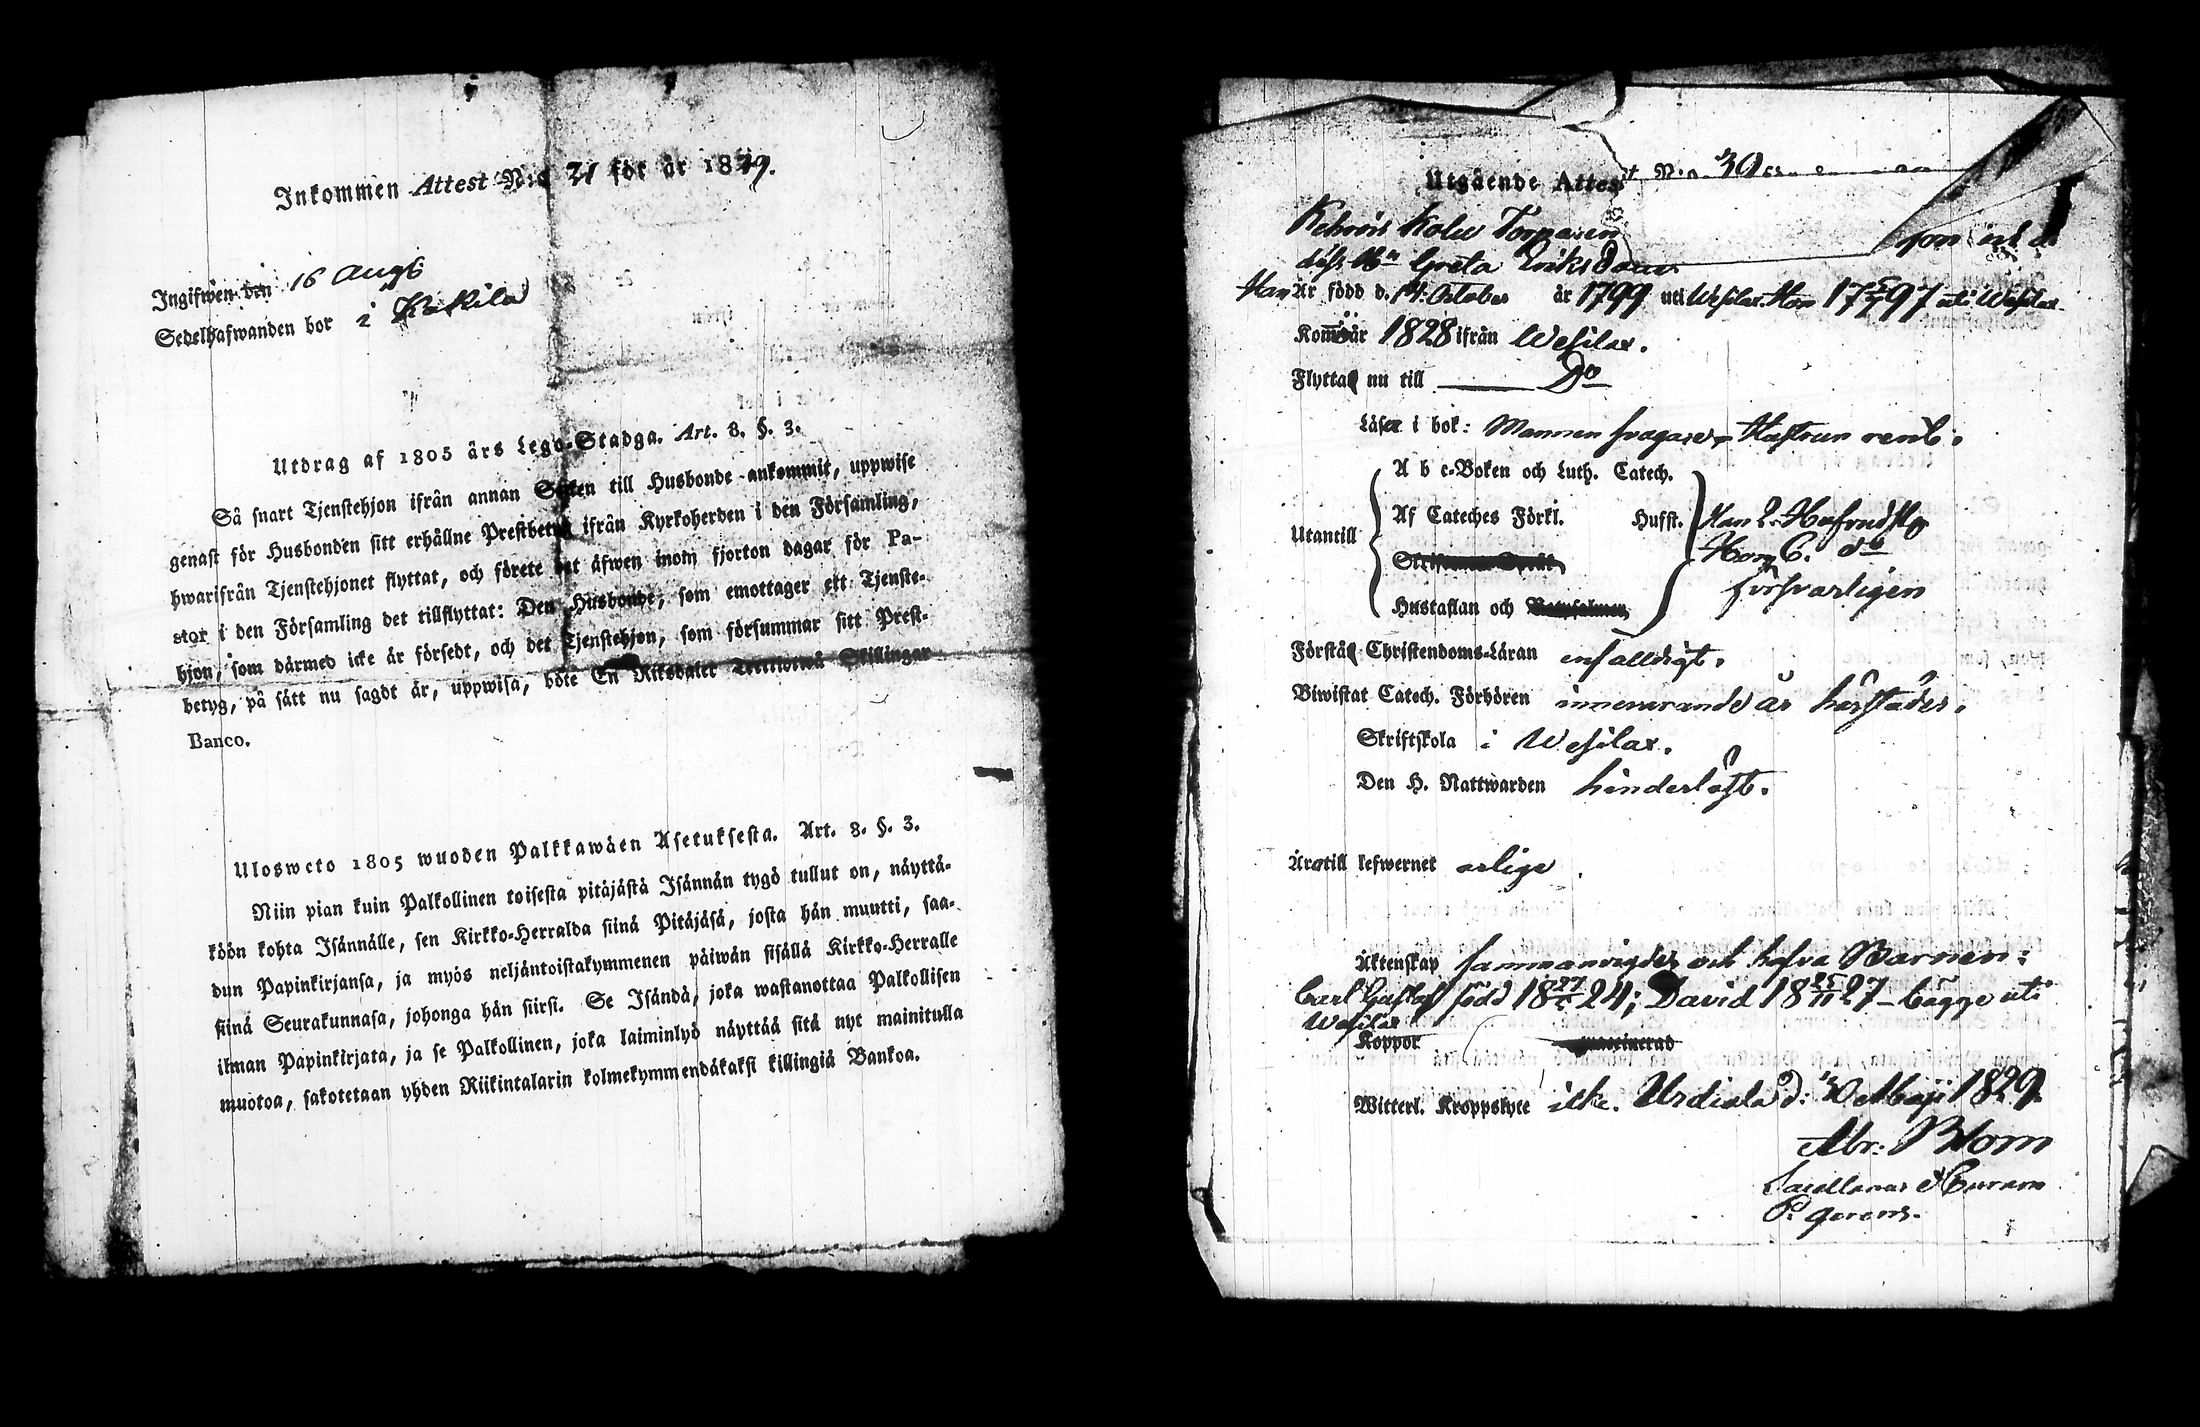 Inkommen Attest N:o 21 för år 1829.
Ingifwen den 16 Aug
Sedelhafwanden bor i Kokila
Utdrag af 1805 års Lego-Stadga. Art. 8. §. 3.
Så snart Tjenstehjon ifrån annan Socken till Husbonde ankommit, uppwise
genast för Husbonden sitt erhållne Prestbetyg ifrån Kyrkoherden i den Församling,
hwarifrån Tjenstehjonet flyttat, och förete det äfwen inom fjorton dagar för Pa-
stor i den Församling det tillflyttat: Den Husbonde, som emottager ett Tjenste-
hjon, som därmed icke är försedt, och det Tjenstehjon, som försummar sitt Prest-
betyg, på sätt nu sagdt är, uppwisa, böte En Riksdaler Trettiotwå Skillingar
Banco.
Ulosweto 1805 wuoden Palkkawäen Asetuksesta. Art. 8. §. 3.
Niin pian kuin Palkollinen toisesta pitäjästä Isännän tygö tullut on, näyttä-
köön kohta Isännälle, sen Kirkko-Herralda siinä Pitäjäsä, josta hän muutti, saa-
dun Papinkirjansa, ja myös neljäntoistakymmenen päiwän sisällä Kirkko-Herralle
siinä Seurakunnasa, johonga hän siirsi. Se Isändä, joka wastanottaa Palkollisen
ilman Papinkirjata, ja se Palkollinen, joka laiminlyö näyttää sitä nyt mainitulla
muotoa, sakotetaan yhden Riikintalarin kolmekymmendäkaksi killingiä Bankoa.
Utgående Attest N:o 30
Kehrois Kolu Torparen
dess H:u Greta Eriksdotter
Han Är född d. 14 October år 1799 uti Wesilax. Hon 17 97 uti Wesilax
Kommo år 1828 ifrån Wesilax.
Flytta nu till Do
Läser i bok: Mannen svagare, Hustrun rent.
A b c-Boken och Luth. Catech.
Utantill Af Cateches Förkl. Husst. Han
Hon do
Hustaflan och försvarligen
Förstå Christendoms-Läran enfalldigt.
Biwistat Catech. Förhören innevarande år härstädes.
Skriftskola i Wesilax.
Den H. Nattwarden hinderlöst.
Äro till lefwernet ärlige
Äktenskap sammanvigde och hafva Barnen:
Carl Gustaf född 18 27 24; David 18 25/11 27 – bägge uti
Wesilax
Koppor
Witterl. Kroppslyte icke. Urdiala d: 30 Maji 1829.
Abr: Blom
Sacellanus & Curam
P. gerens.